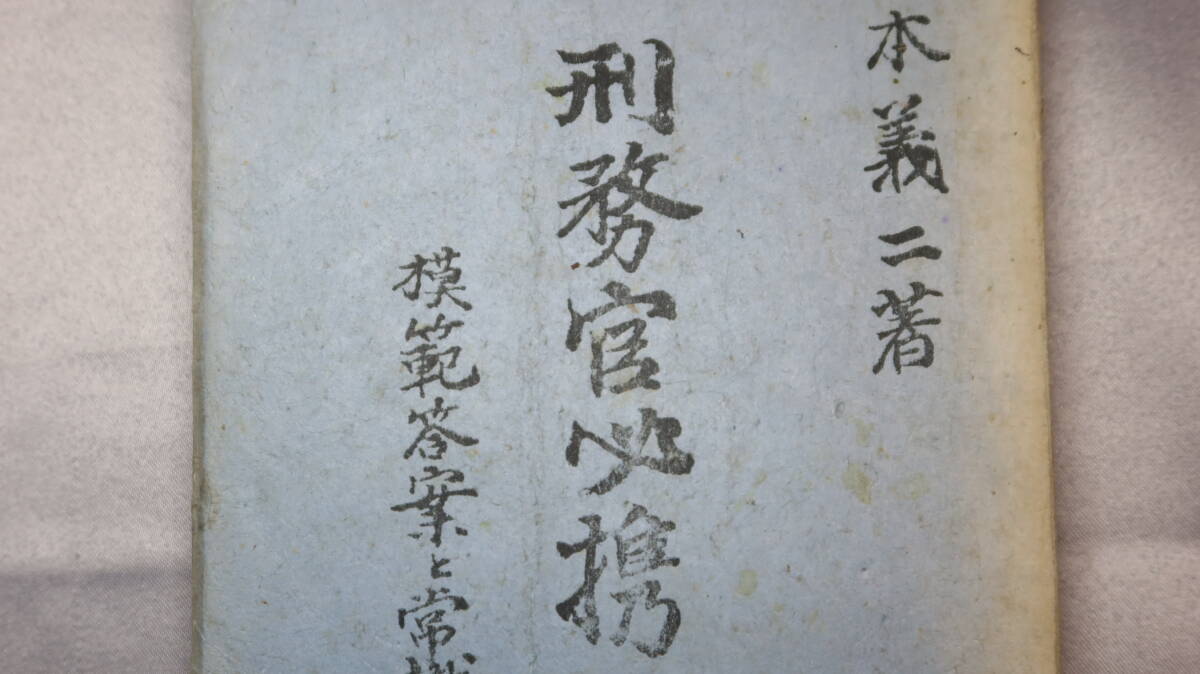 本義二著
刑務官必携
模範答案と常